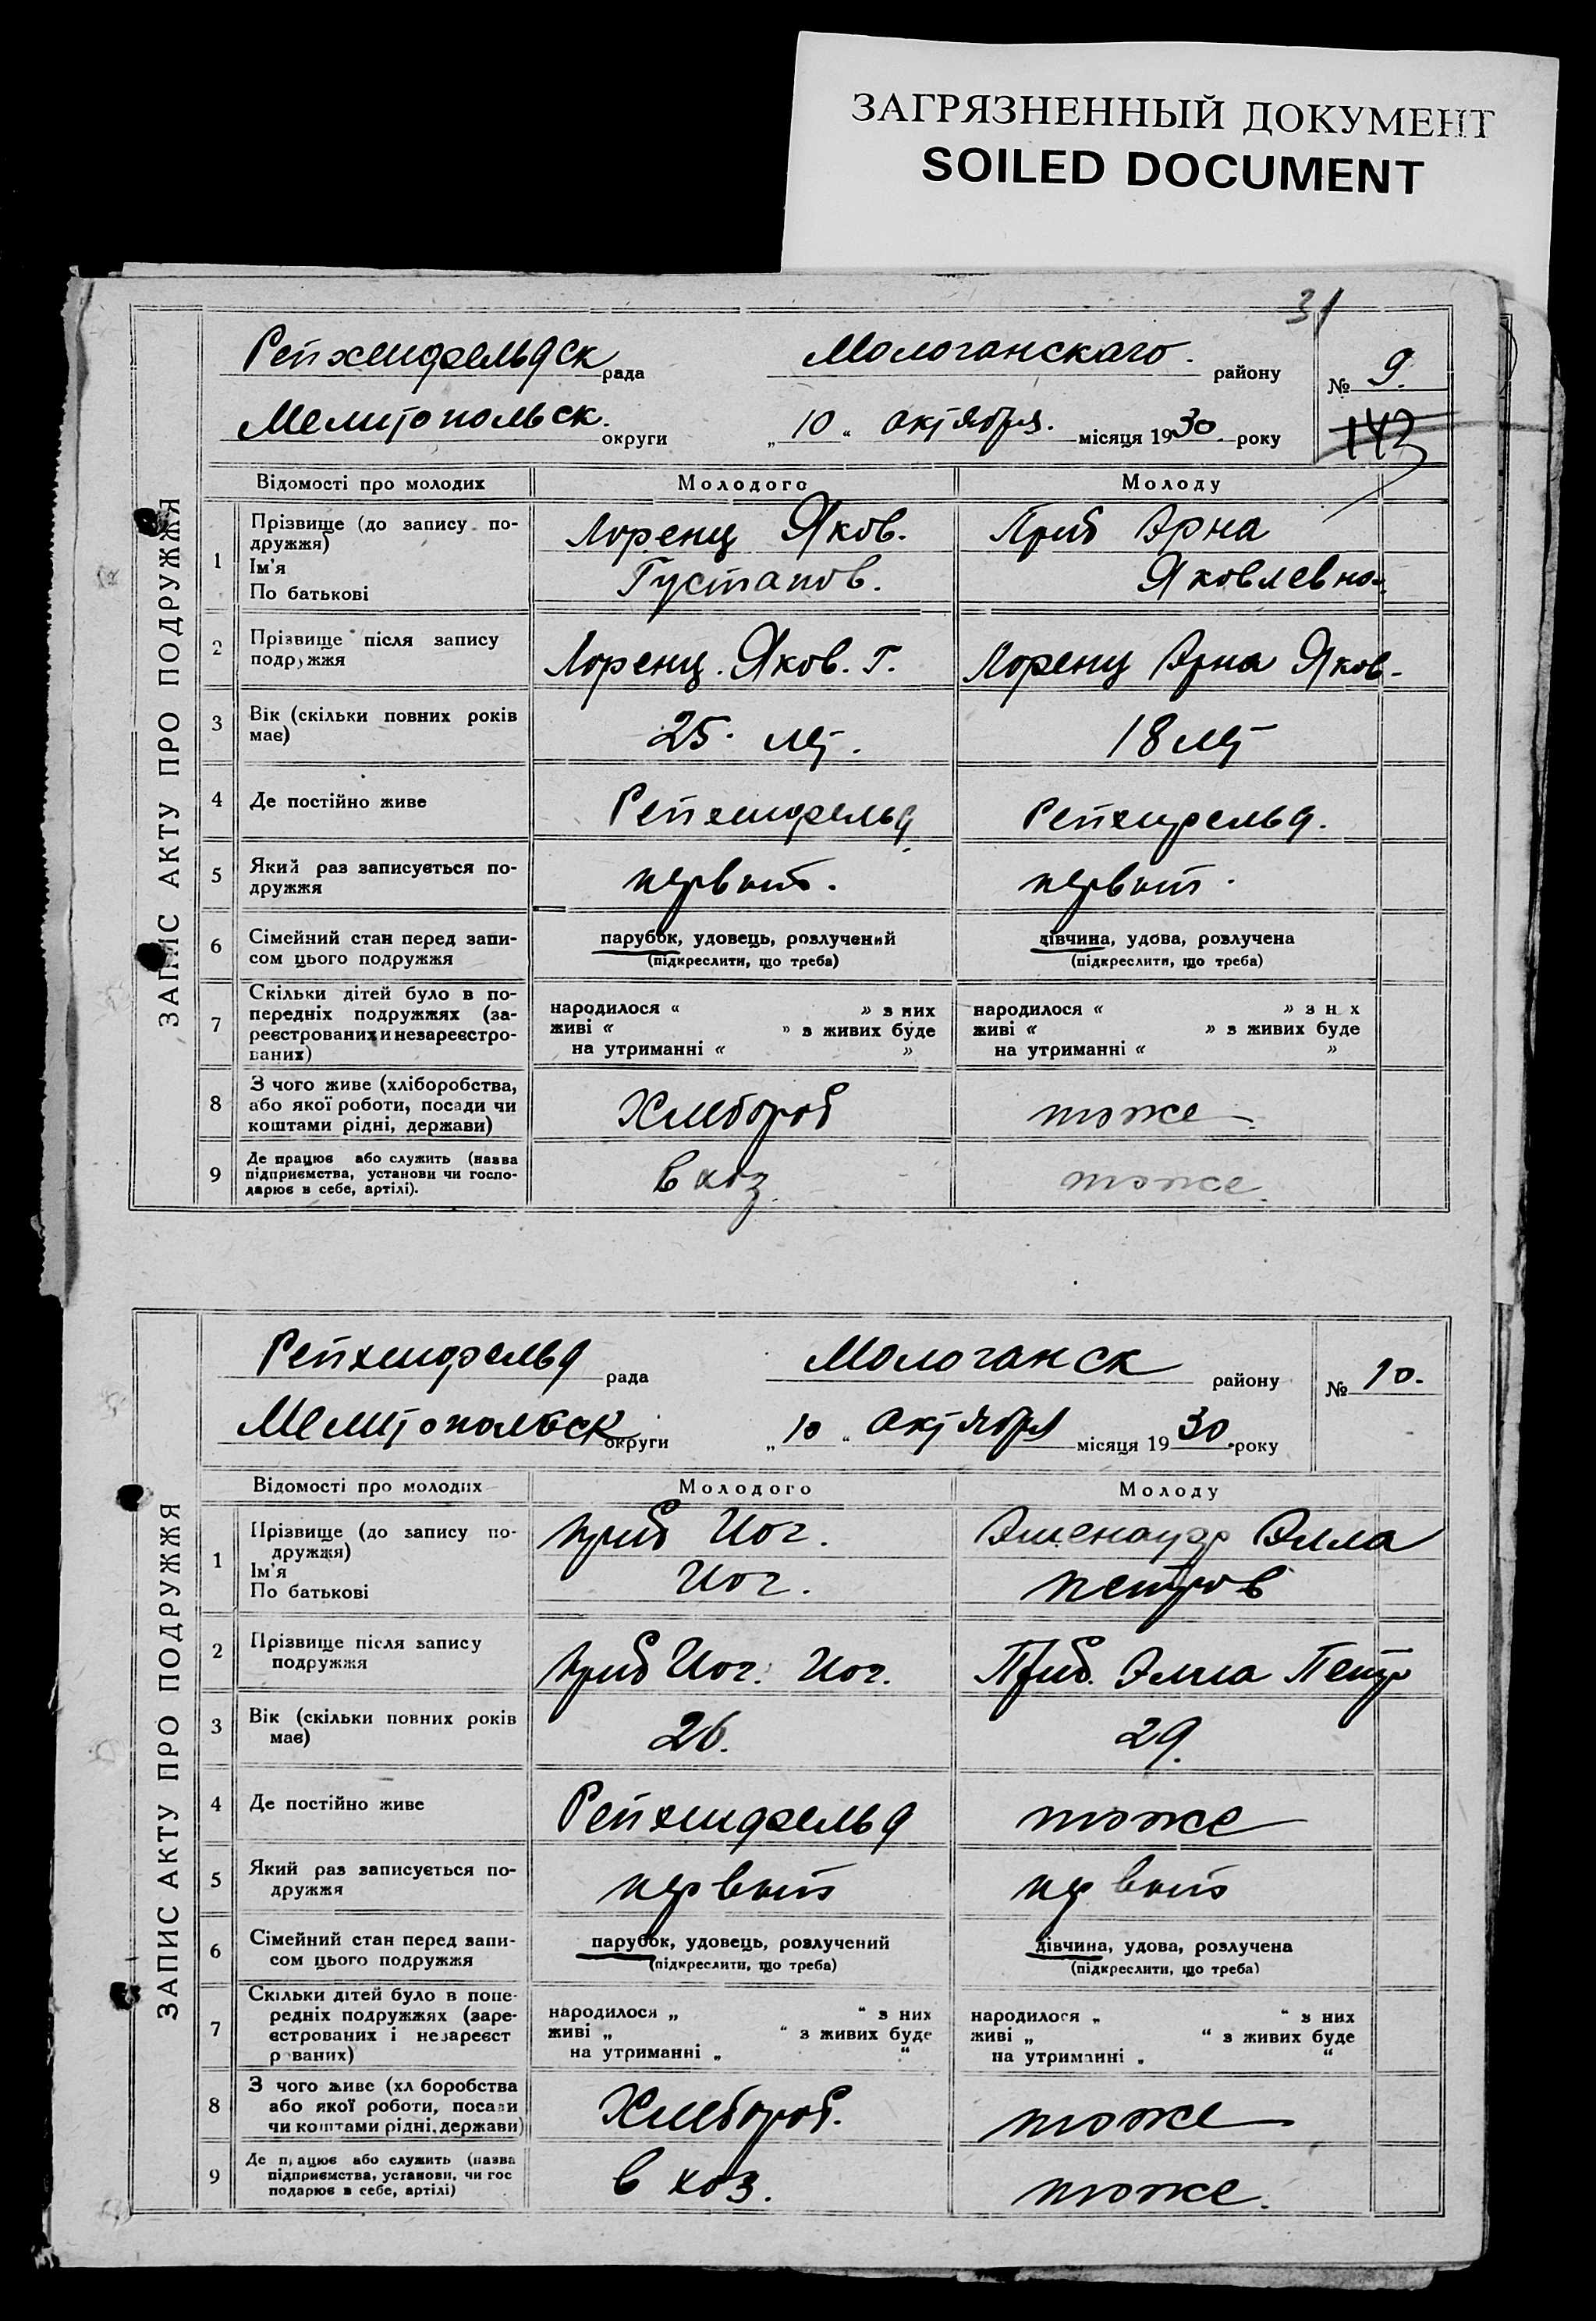 ЗАГРЯЗНЕННЫЙ ДОКУМЕНТ
SOILED DOCUMENT
31
ЗАПИС АКТУ ПРО ПОДРУЖЖЯ
Рейхенфельдск рада Мологанскаго. району № 9.
Мелитопольск. округи „10“ октября. місяця 1930. року 143
Відомості про молодих Молодого Молоду
1 Прізвище (до запису по-
дружжя)
Ім'я
По батькові
Лоренц Яков.
Густапов.
Приб Эрна
Яковлевна.
2 Прізвище після запису
подружжя
Лоренц. Яков. Г.
Лоренц Эрна Яков-
3 Вік (скільки повних років
має)
25. лет.
18 лет
4 Де постійно живе
Рейхенфельд
Рейхенфельд.
5 Який раз записується по-
дружжя
первый.
первый.
6 Сімейний стан перед запи-
сом цього подружжя
парубок, удовець, розлучений
(підкреслити, що треба)
дівчина, удова, розлучена
(підкреслити, що треба)
7 Скільки дітей було в по-
передніх подружжях (за-
реєстрованих и незареєстро-
ваних)
народилося « » з них
живі « » з живих буде
на утриманні « »
народилося « » з н х
живі « » з живих буде
на утриманні « »
8 З чого живе (хліборобства,
або якої роботи, посади чи
коштами рідні, держави)
Хлебороб
тоже
9 Де працює або служить (назва
підприємства, установи чи госпо-
дарює в себе, артілі).
в хоз.
тоже.
ЗАПИС АКТУ ПРО ПОДРУЖЖЯ
Рейхенфельд рада Мологанск району № 10.
Мелитопольск округи „10“ октября місяця 1930. року
Відомості про молодих Молодого Молоду
1 Прізвище (до запису по-
дружжя)
Ім'я
По батькові
Приб Иог.
Иог.
Эшенауэр Элла
Петров
2 Прізвище після запису
подружжя
Приб Иог. Иог.
Приб. Элла Петр
3 Вік (скільки повних років
має)
26.
29.
4 Де постійно живе
Рейхенфельд
тоже
5 Який раз записується по-
дружжя
первый
первый
6 Сімейний стан перед запи-
сом цього подружжя
парубок, удовець, розлучений
(підкреслити, що треба)
дівчина, удова, розлучена
(підкреслити, що треба)
7 Скільки дітей було в попе-
редніх подружжях (заре-
єстрованих і незареєст
р ваних)
народилося „ “ з них
живі „ “ з живих буде
на утриманні „ “
народилося „ “ з них
живі „ “ з живих буде
на утриманні „ “
8 З чого живе (хл боробства
або якої роботи, посади
чи коштами рідні, держави)
Хлебороб.
тоже
9 Де працює або служить (назва
підприємства, установи, чи гос
подарює в себе, артілі)
в хоз.
тоже.